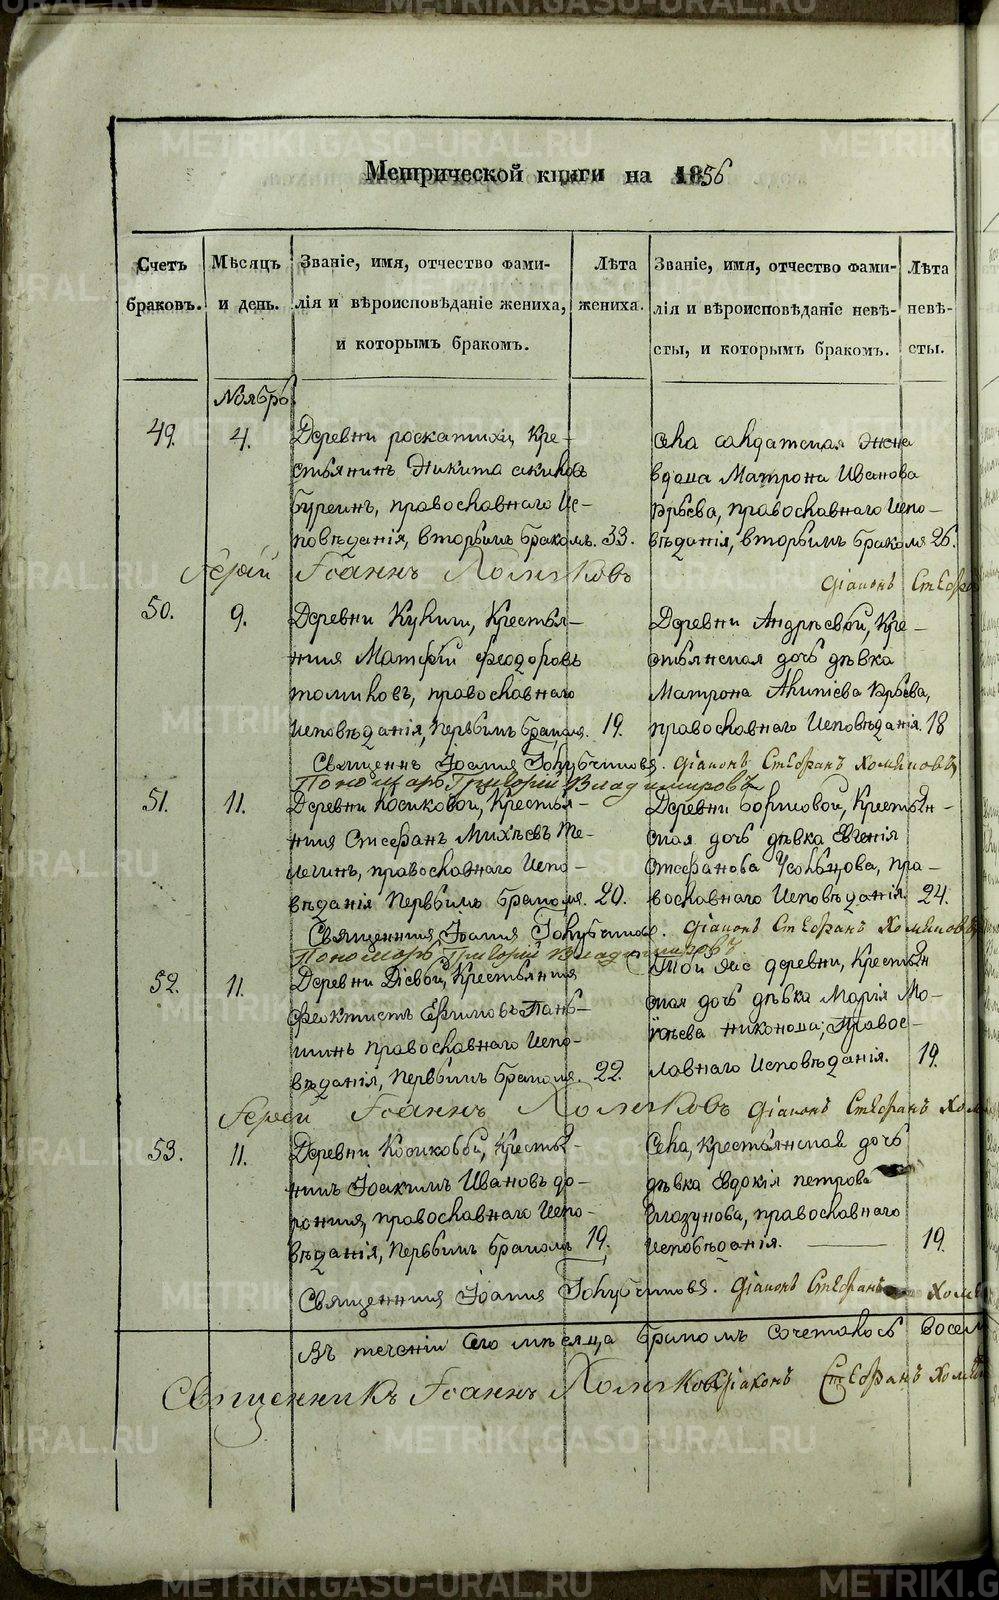 Метрической книги на 1856
Счетъ браковъ.
Мѣсяцъ и день.
Званіе, имя, отчество фами-
лія и вѣроисповѣданіе жениха,
и которымъ бракомъ.
Лѣта жениха.
Званіе, имя, отчество фами-
лія и вѣроисповѣданіе невѣ-
сты, и которымъ бракомъ.
Лѣта невѣ-
сты.
Ноябрь
49. 4.
Деревни роскатихи, Кре-
стьянинъ Никита
Буреинъ, православнаго Ис-
повѣданія, вторымъ бракомъ. 33.
села салдатская жена
вдова Матрона Иванова
православнаго Испо-
вѣданія, вторымъ бракомъ 26.
Іерей Іоаннъ Холмяковъ
діаконъ Стефа
50. 9.
Деревни Крестья-
нинъ Матфій Феодоровъ
православнаго
Исповѣданія, Первымъ бракомъ. 19.
Деревни Андрѣевой, Кре-
стьянская дочь дѣвка
Матрона
православнаго Исповѣданія. 18
Священникъ Іоаннъ діаконъ Стефанъ
Пономарь Григорій Владимировъ
51. 11.
Деревни Косиковой, Крестья-
нинъ Стефанъ Михѣевъ Те-
легинъ, православнаго Испо-
вѣданія Первымъ бракомъ. 20.
Деревни Крестьян-
ская дочь дѣвка Евгенія
Стефанова Усольцова, пра-
вославнаго Исповѣданія. 24.
Священникъ Іоаннъ діаконъ Стефанъ
Пономарь Григорій Владимировъ
52. 11.
Деревни Крестьянинъ
Феоктистъ Ефимовъ Пань-
шинъ православнаго Испо-
вѣданія, Первымъ бракомъ. 22.
Той же деревни, Крестьян
ская дочь дѣвка Марія Мо-
Правос-
лавнаго Исповѣданія. 19.
Іерей Іоаннъ Холмяковъ діаконъ Стефанъ
53. 11.
Деревни Косиковой, Крестья-
нинъ Іоакимъ Ивановъ до-
ронинъ, православнаго Испо-
вѣданія, Первымъ бракомъ 19.
Села, Крестьянская дочь
дѣвка Евдокія петрова
Глазунова, православнаго
Исповѣданія. 19.
Священникъ Іоаннъ діаконъ Стефанъ
Въ теченіи сего мѣсяца бракомъ сочеталось восем
Священникъ Іоаннъ Холмяковъ діаконъ Стефанъ
METRIKI.GASO-URAL.RU